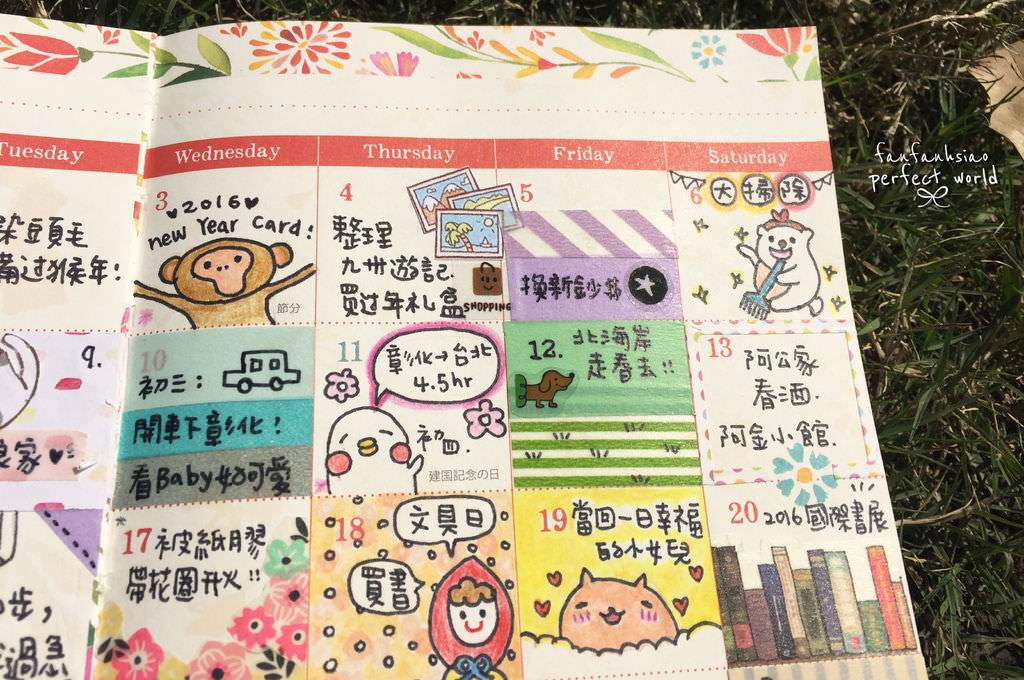 fanfanhsiao
perfect world
Tuesday
Wednesday
Thursday
Friday
Saturday
朵豆頁毛
備过猴年!
3
♥2016♥
new Year Card!
節分
4
整理
九州遊記.
買过年礼盒
SHOPPING
5
換新鈔
6
大掃除
9.
娘家♥
10
初三:
開車下彰化!
看Baby好可愛
11
彰化→台北
4.5hr
初四.
建国記念の日
12.
北海岸
走春去!!
13
阿公家
春酒.
阿金小館.
步,
過急
17
被紙膠
帶花圈開火!!
18
文具日
買書
19
當回一日幸福
的小女兒
20
2016國際書展